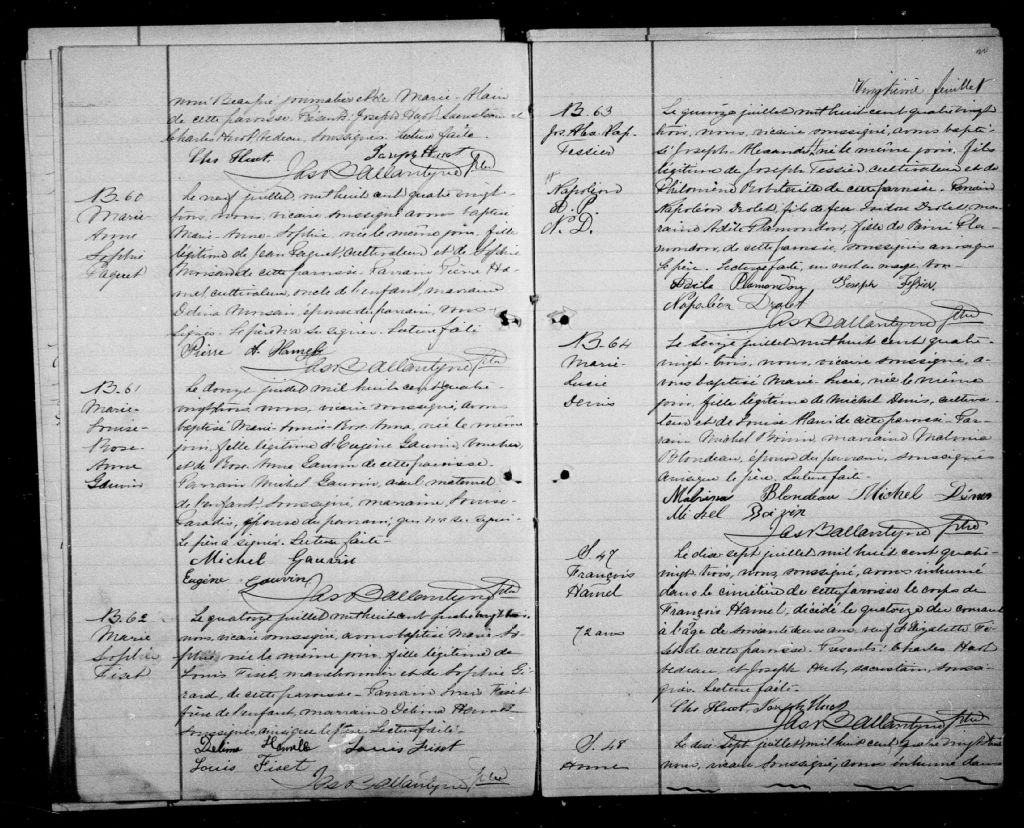 nomé Beaupré journalier et de Marie Alain
de cette paroisse. Présents: Joseph Huot, Sacristain et
Charles Huot bedeau, soussignés. Lecture faite.
Chs Huot Joseph Huot
Jas Ballantyne ptre
B. 60
Marie-
Anne
Sophie
Paquet
Le neuf juillet mil huit cent quatre vingt-
trois, nous, vicaire soussigné avons baptisé
Marie-Anne-Sophie née le même jour, fille
légitime de Jean Paquet, cultivateur et de Sophie
de cette paroisse. Parrain Pierre Ha-
mel, cultivateur, oncle de l'enfant, marraine
Délina épouse du parrain,
signés. Le père n'a su signer. Lecture faite
Pierre A. Hamel
Jas Ballantyne ptre
B. 61
Marie-
Louise-
Rose-
Anne
Gauvin
Le douze juillet mil huit cent quatre-
vingt trois nous, vicaire soussigné, avons
baptisé Marie-Louise-Rose-Anna, née le même
jour, fille légitime d'Eugène Gauvin, boucher,
et de Rose-Anna Gauvin de cette paroisse.
Parrain Michel Gauvin, aieul maternel
de l'enfant, soussigné, marraine, Louise
Paradis, épouse du parrain, qui n'a su signer.
Le père a signé. Lecture faite.
Michel Gauvin
Eugène Gauvin
Jas Ballantyne ptre
B. 62
Marie
Sophie
Fiset
Le quatorze juillet mil huit cent quatre vingt trois,
nous, vicaire soussigné, avons baptisé Marie So-
phie, née le même jour, fille légitime de
Louis Fiset, et de Sophie Gi-
rard, de cette paroisse. Parrain Louis Fiset
frère de l'enfant, marraine Délima Hamel
soussignés ainsi que le père. Lecture faite.
Delima Hamelle Louis Fiset
Louis Fiset
Jas Ballantyne ptre
Vingtième feuillet
B. 63
Jos. Alex. Nap.
Tessier
Napoléon
N. D.
Le quinze juillet mil huit cent quatre vingt
trois, nous, vicaire soussigné, avons bapti-
sé Joseph-Alexandre, né le même jour, fils
légitime de Joseph Tessier cultivateur et de
Philomène Robitaille de cette paroisse. Parrain
Napoléon Drolet, fils de feu Isidore Drolet, mar-
raine Adèle Plamondon, fille de Pierre Pla-
mondon, de cette paroisse, soussignés ainsi que
le père. Lecture faite, un mot en marge, bon.
Adéla Plamondon Joseph Tessier
Napoléon Drolet
Jas Ballantyne ptre
B. 64
Marie-
Lucie
Denis
Le seize juillet mil huit cent quatre
vingt-trois, nous, vicaire soussigné, a-
vons baptisé Marie-Lucie, née le même
jour, fille légitime de Michel Denis, cultiva-
teur et de Louise Alain de cette paroisse. Par-
rain Michel Boivin, marraine Malvina
Blondeau, épouse du parrain, soussignés
ainsi que le père. Lecture faite.
Malvina Blondeau Michel Dénis
Michel Boivin
Jas Ballantyne ptre
S. 47
François
Hamel
72 ans
Le dix sept juillet mil huit cent quatre
vingt trois, nous, soussigné, avons inhumé
dans le cimetière de cette paroisse le corps de
François Hamel, décédé le quatorze du courant
à l'âge de soixante douze ans veuf d'Elizabeth Fi-
set de cette paroisse. Présents: Charles Huot
bedeau et Joseph Huot, sacristain, sous-
signés. Lecture faite.
Chs Huot Joseph Huot
Jas Ballantyne ptre
S. 48
Le dix sept juillet mil huit cent quatre vingt trois
nous, vicaire soussigné, avons inhumé dans